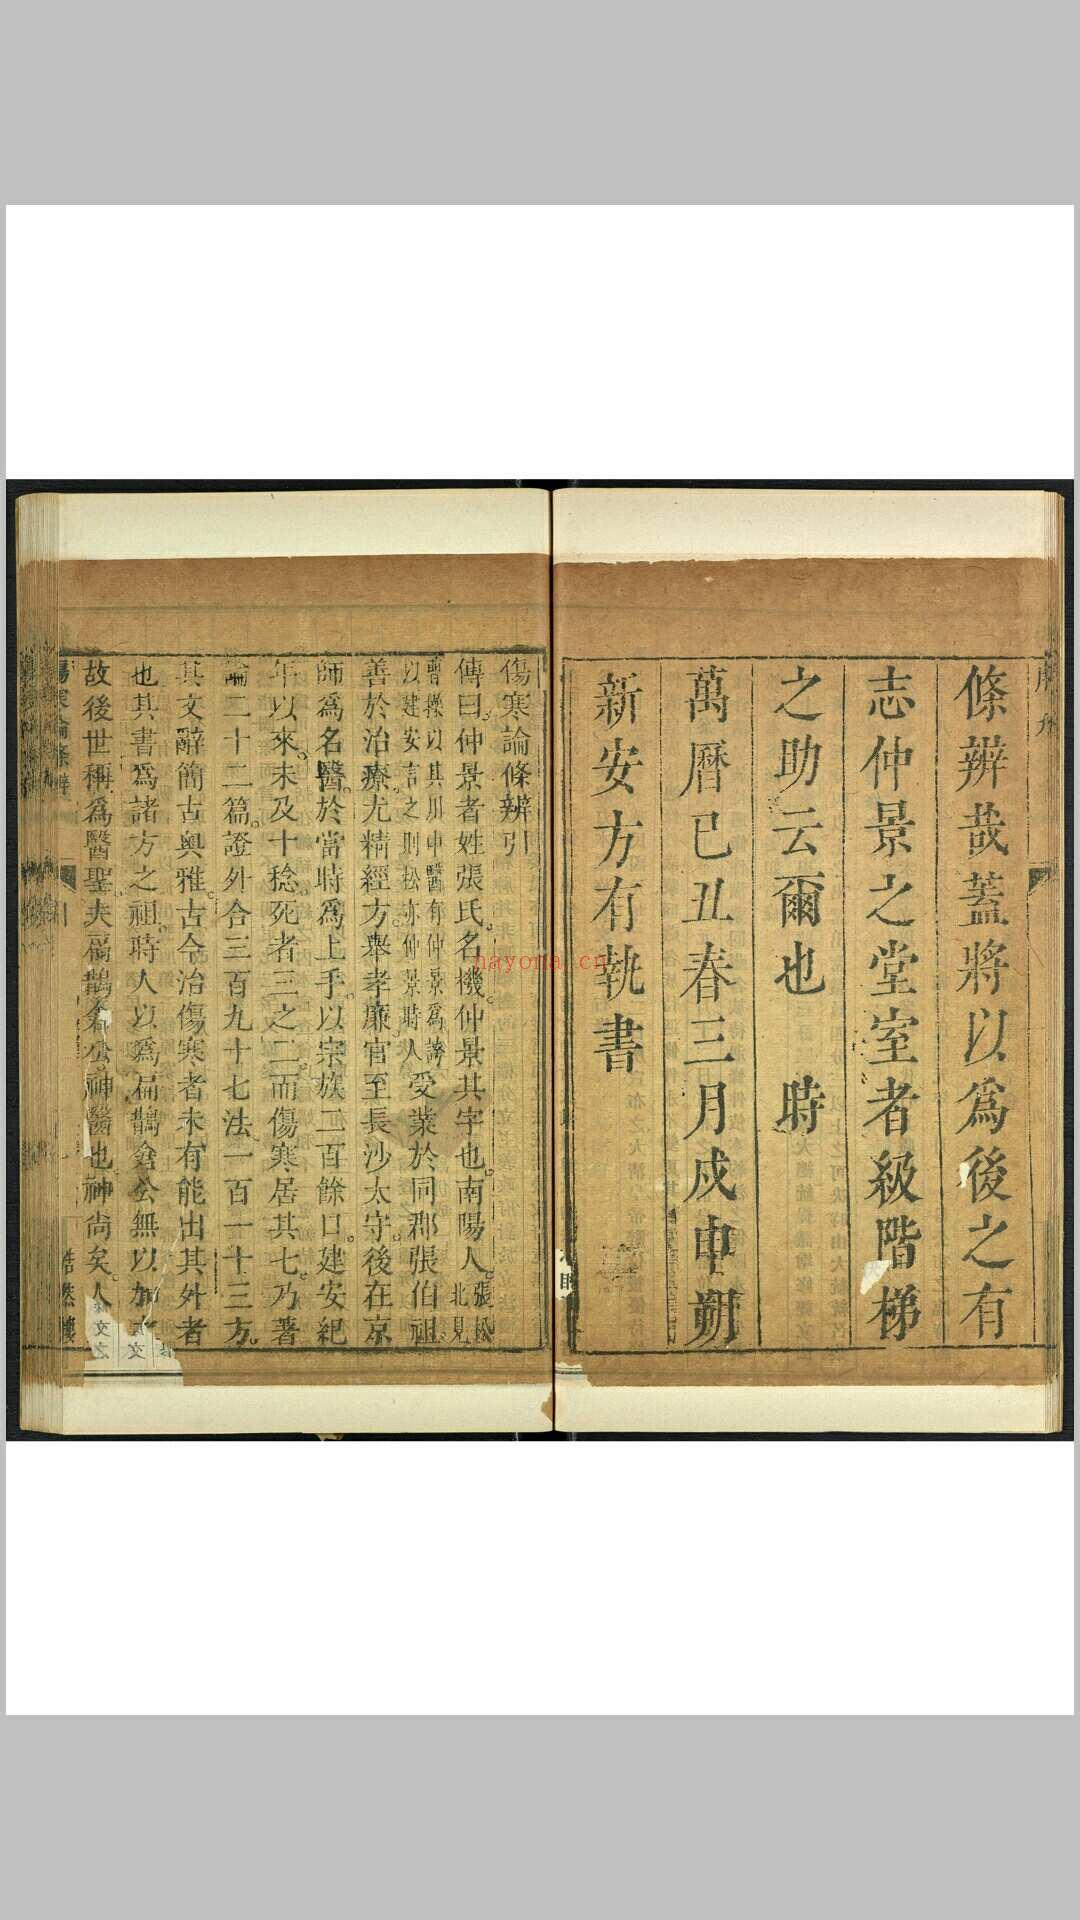 條辨哉蓋將以爲後之有
志仲景之堂室者級階梯
之助云爾也 時
萬曆己丑春三月戍申朔
新安方有執書
傷寒論條辨引
傳曰仲景者姓張氏名機仲景其字也南陽人張松北見
曹操以其川中醫有仲景爲誇
以建安言之則松亦仲景時人受業於同郡張伯祖
善於治療尤精經方舉孝廉官至長沙太守後在京
師爲名醫於當時爲上手以宗族二百餘口建安紀
年以來未及十稔死者三之二而傷寒居其七乃著
論二十二篇證外合三百九十七法一百一十三方
其文辭簡古奥雅古今治傷寒者未有能出其外者
也其書爲諸方之祖時人以爲扁鵲倉公無以加
故後世稱爲醫聖夫扁鵲倉公神醫也神尚矣人
傷寒論條辨 引 浩然樓
hayona.cn